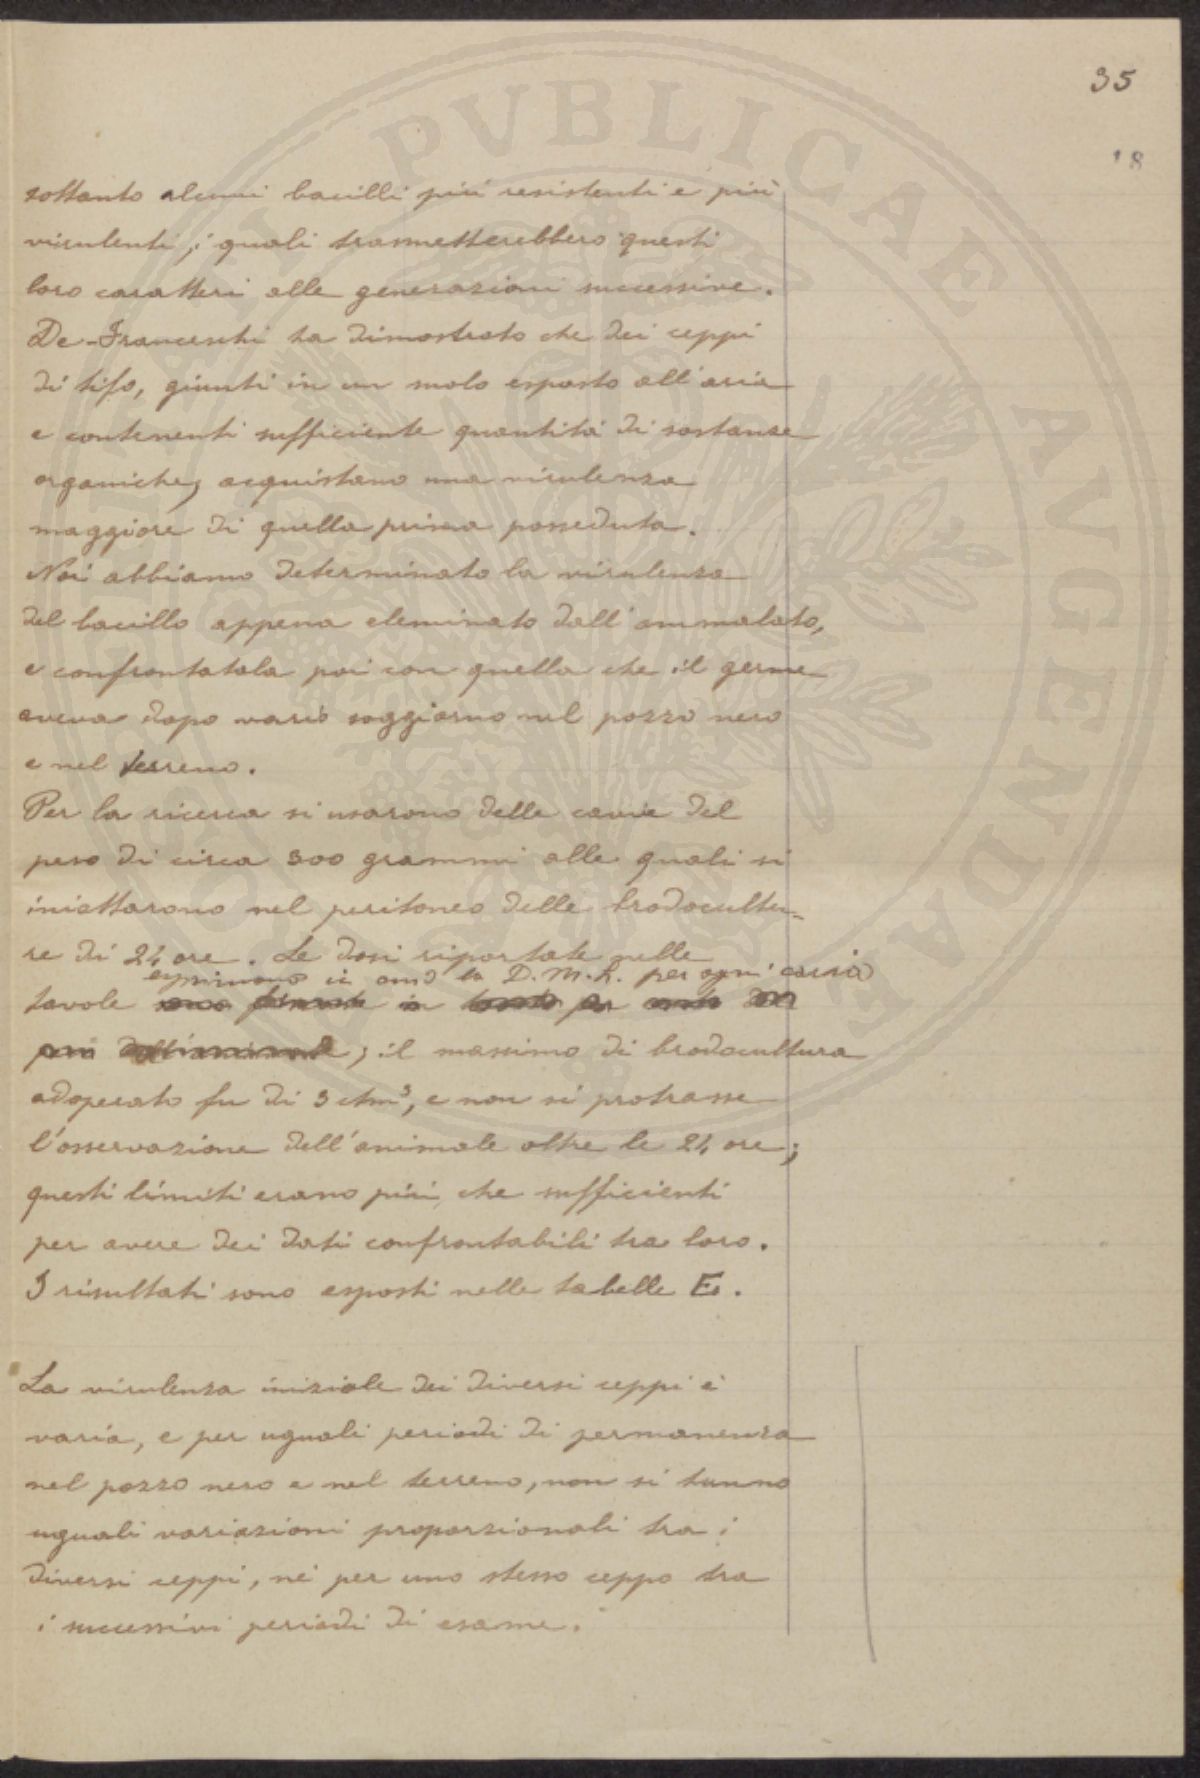 35
18
soltanto alcuni bacilli più resistenti e più
virulenti, i quali trasmetterebbero questi
loro caratteri alle generazioni successive.
De-Franceschi ha dimostrato che dei ceppi
di tifo, giunti in un suolo esposto all'aria
e contenenti sufficiente quantità di sostanze
organiche, acquistano una virulenza
maggiore di quella prima posseduta.
Noi abbiamo determinato la virulenza
del bacillo appena eleminato dall'ammalato,
e confrontatala poi con quella che il germe
aveva dopo vario soggiorno nel pozzo nero
e nel terreno.
Per la ricerca si usarono delle cavie del
peso di circa 300 grammi alle quali si
iniettarono nel peritoneo delle brodocultu-
re di 24 ore. Le dosi riportate nelle
esprimono in cm3 la D. M. L. per ogni cavia
tavole
; il massimo di brodocultura
adoperato fu di 3 ctm3, e non si protrasse
l'osservazione dell'animale oltre le 24 ore;
questi limiti erano più che sufficienti
per avere dei dati confrontabili tra loro.
I risultati sono esposti nelle tabelle E.
La virulenza iniziale dei diversi ceppi è
varia, e per uguali periodi di permanenza
nel pozzo nero e nel terreno, non si hanno
uguali variazioni proporzionali tra i
diversi ceppi, nè per uno stesso ceppo tra
i successivi periodi di esame.
PVBLICAE AVGENDAE